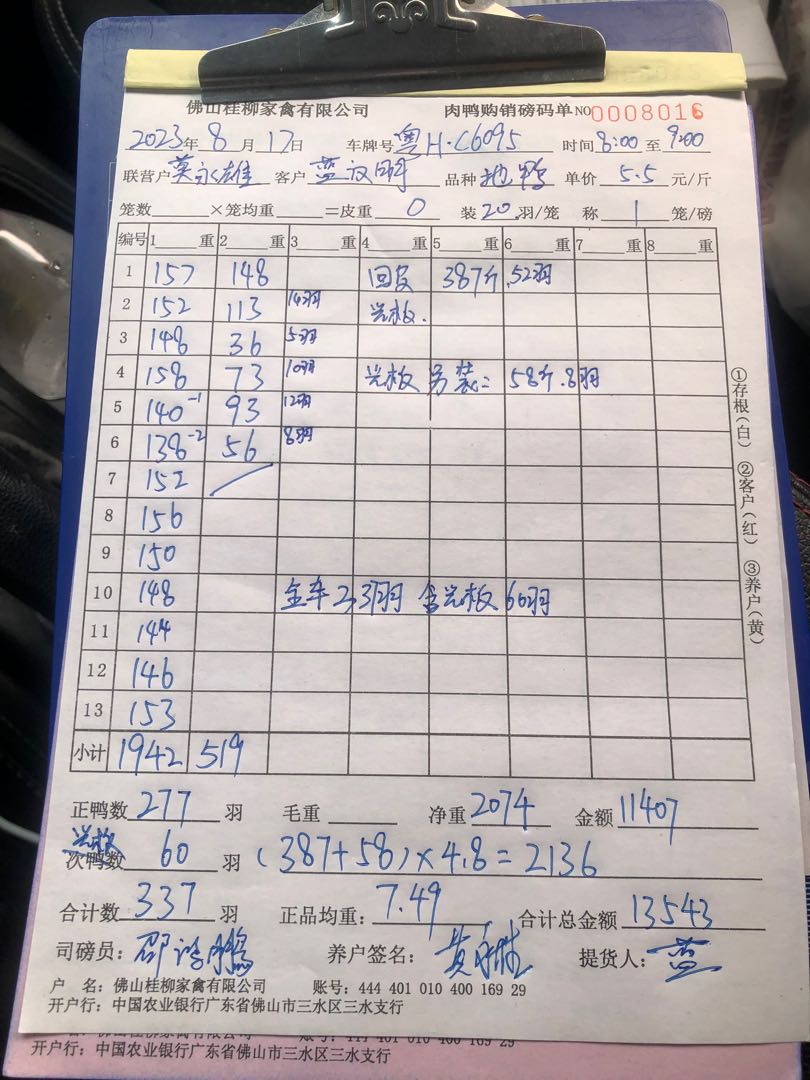 佛山桂柳家禽有限公司 肉鸭购销磅码单 NO 0008016
2023年8月17日 车牌号 粤H·C6095 时间 8:00 至 9:00
联营户 莫永雄 客户 蓝 品种 地鸭 单价 5.5 元/斤
笼数 ×笼均重 =皮重 0 装 20 羽/笼 称 1 笼/磅
编号 1 重 2 重 3 重 4 重 5 重 6 重 7 重 8 重
1 157 148 回皮 387斤.52羽
2 152 113 14羽 光板.
3 148 36 5羽
4 158 73 10羽 光板 另装: 58斤.8羽
5 140-1 93 12羽
6 138-2 56 8羽
7 152
8 156
9 150
10 148 全车 337羽 含光板 60羽
11 144
12 146
13 153
小计 1942 519
正鸭数 277 羽 毛重 净重 2074 金额 11407
光板
次鸭数 60 羽 (387+58)×4.8=2136
合计数 337 羽 正品均重: 7.49 合计总金额 13543
司磅员: 养户签名: 提货人: 蓝
户 名: 佛山桂柳家禽有限公司 账号: 444 401 010 400 169 29
开户行: 中国农业银行广东省佛山市三水区三水支行
开户行: 中国农业银行广东省佛山市三水区三水支行
①存根(白) ②客户(红) ③养户(黄)